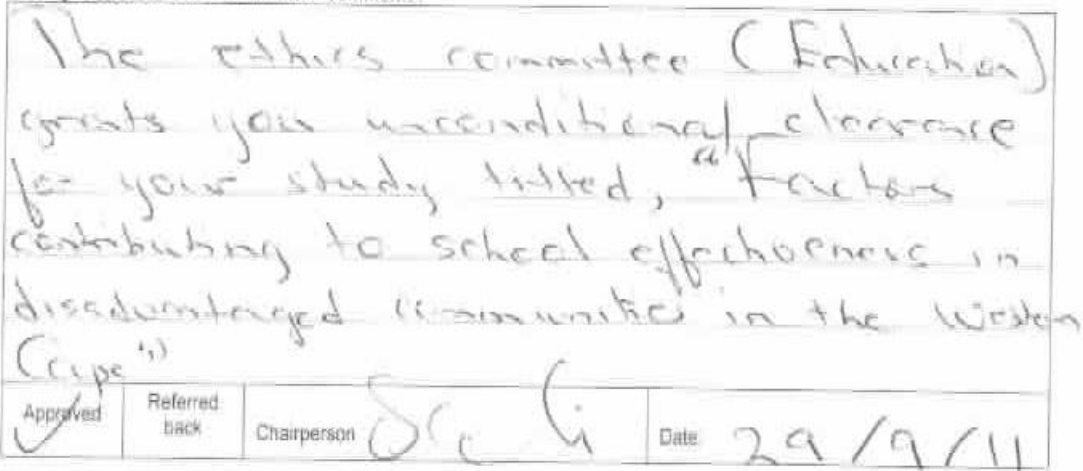 The ethics committee (Education)
grants you unconditional clearance
for your study titled, "Factors
contributing to school effectiveness in
disadvantaged communities in the Western
Cape")
Approved ✓ Referred back Chairperson Date: 29/9/11